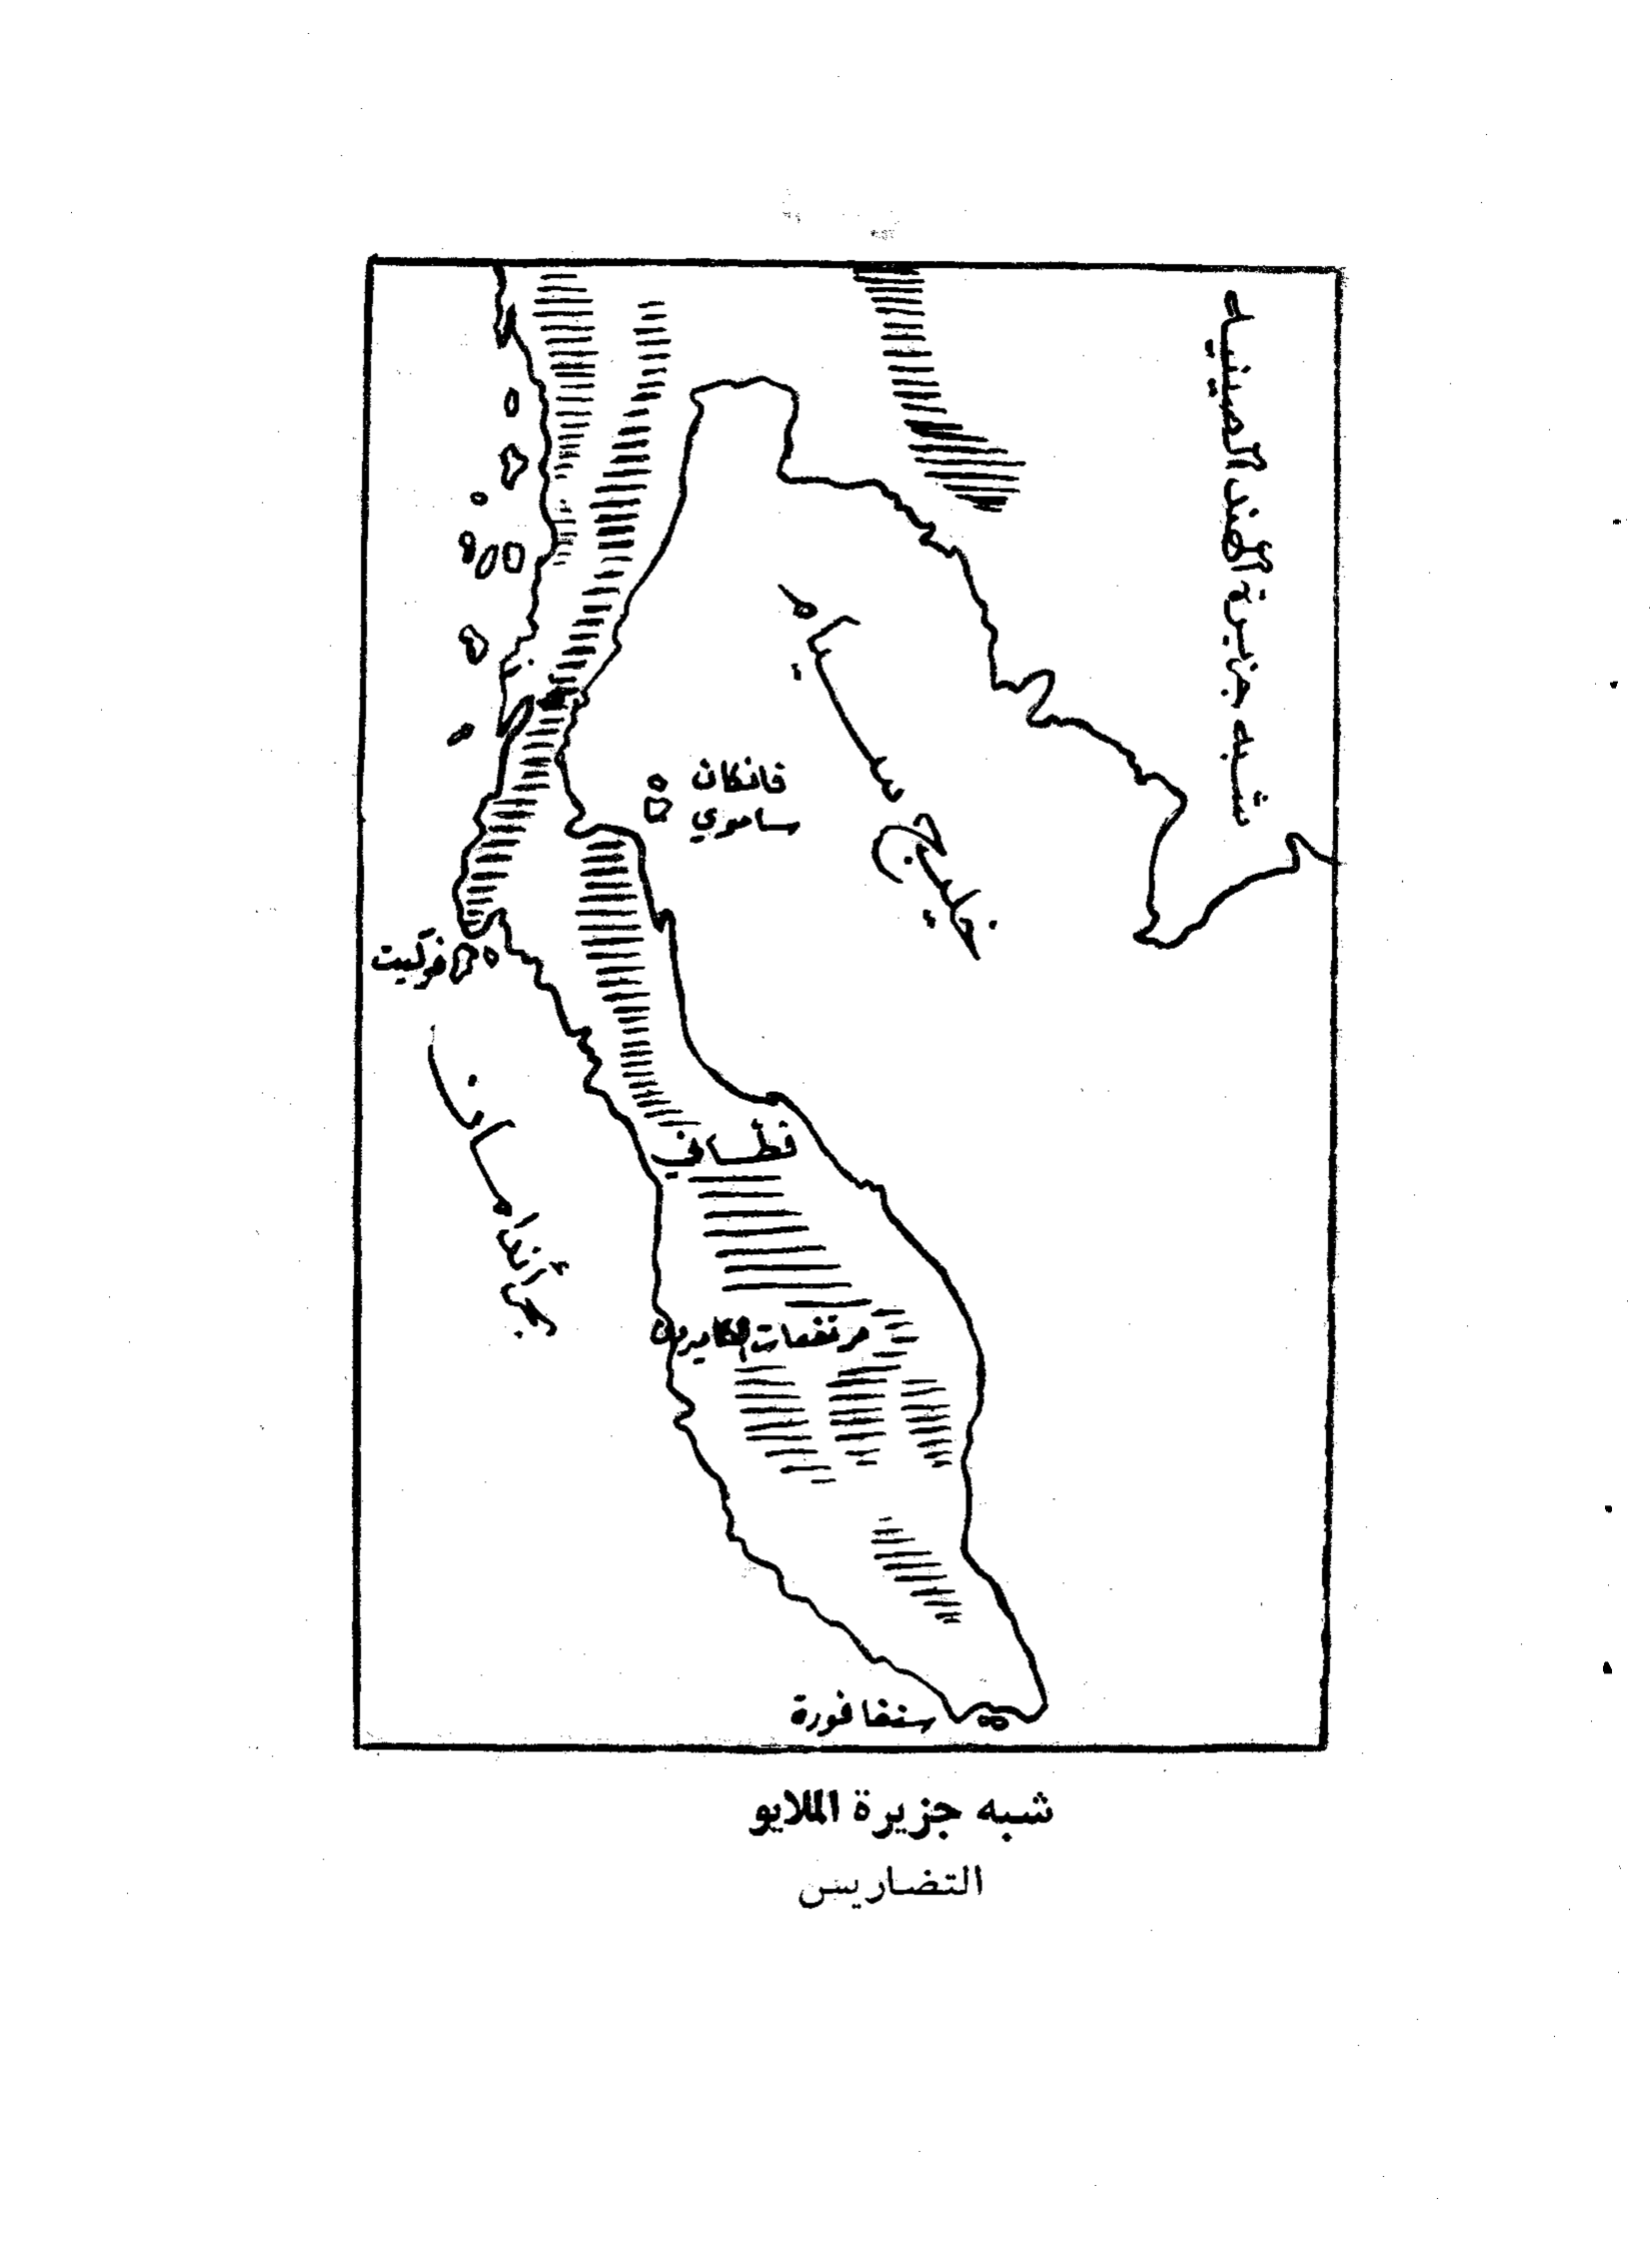 شبه جزيرة الهند الصينية
خليج سيام
فانكان
ساموي
فوكيت
بحر أندامان
فطاني
مرتفعات الكاميرون
سنغافورة
شبه جزيرة الملايو
التضاريس